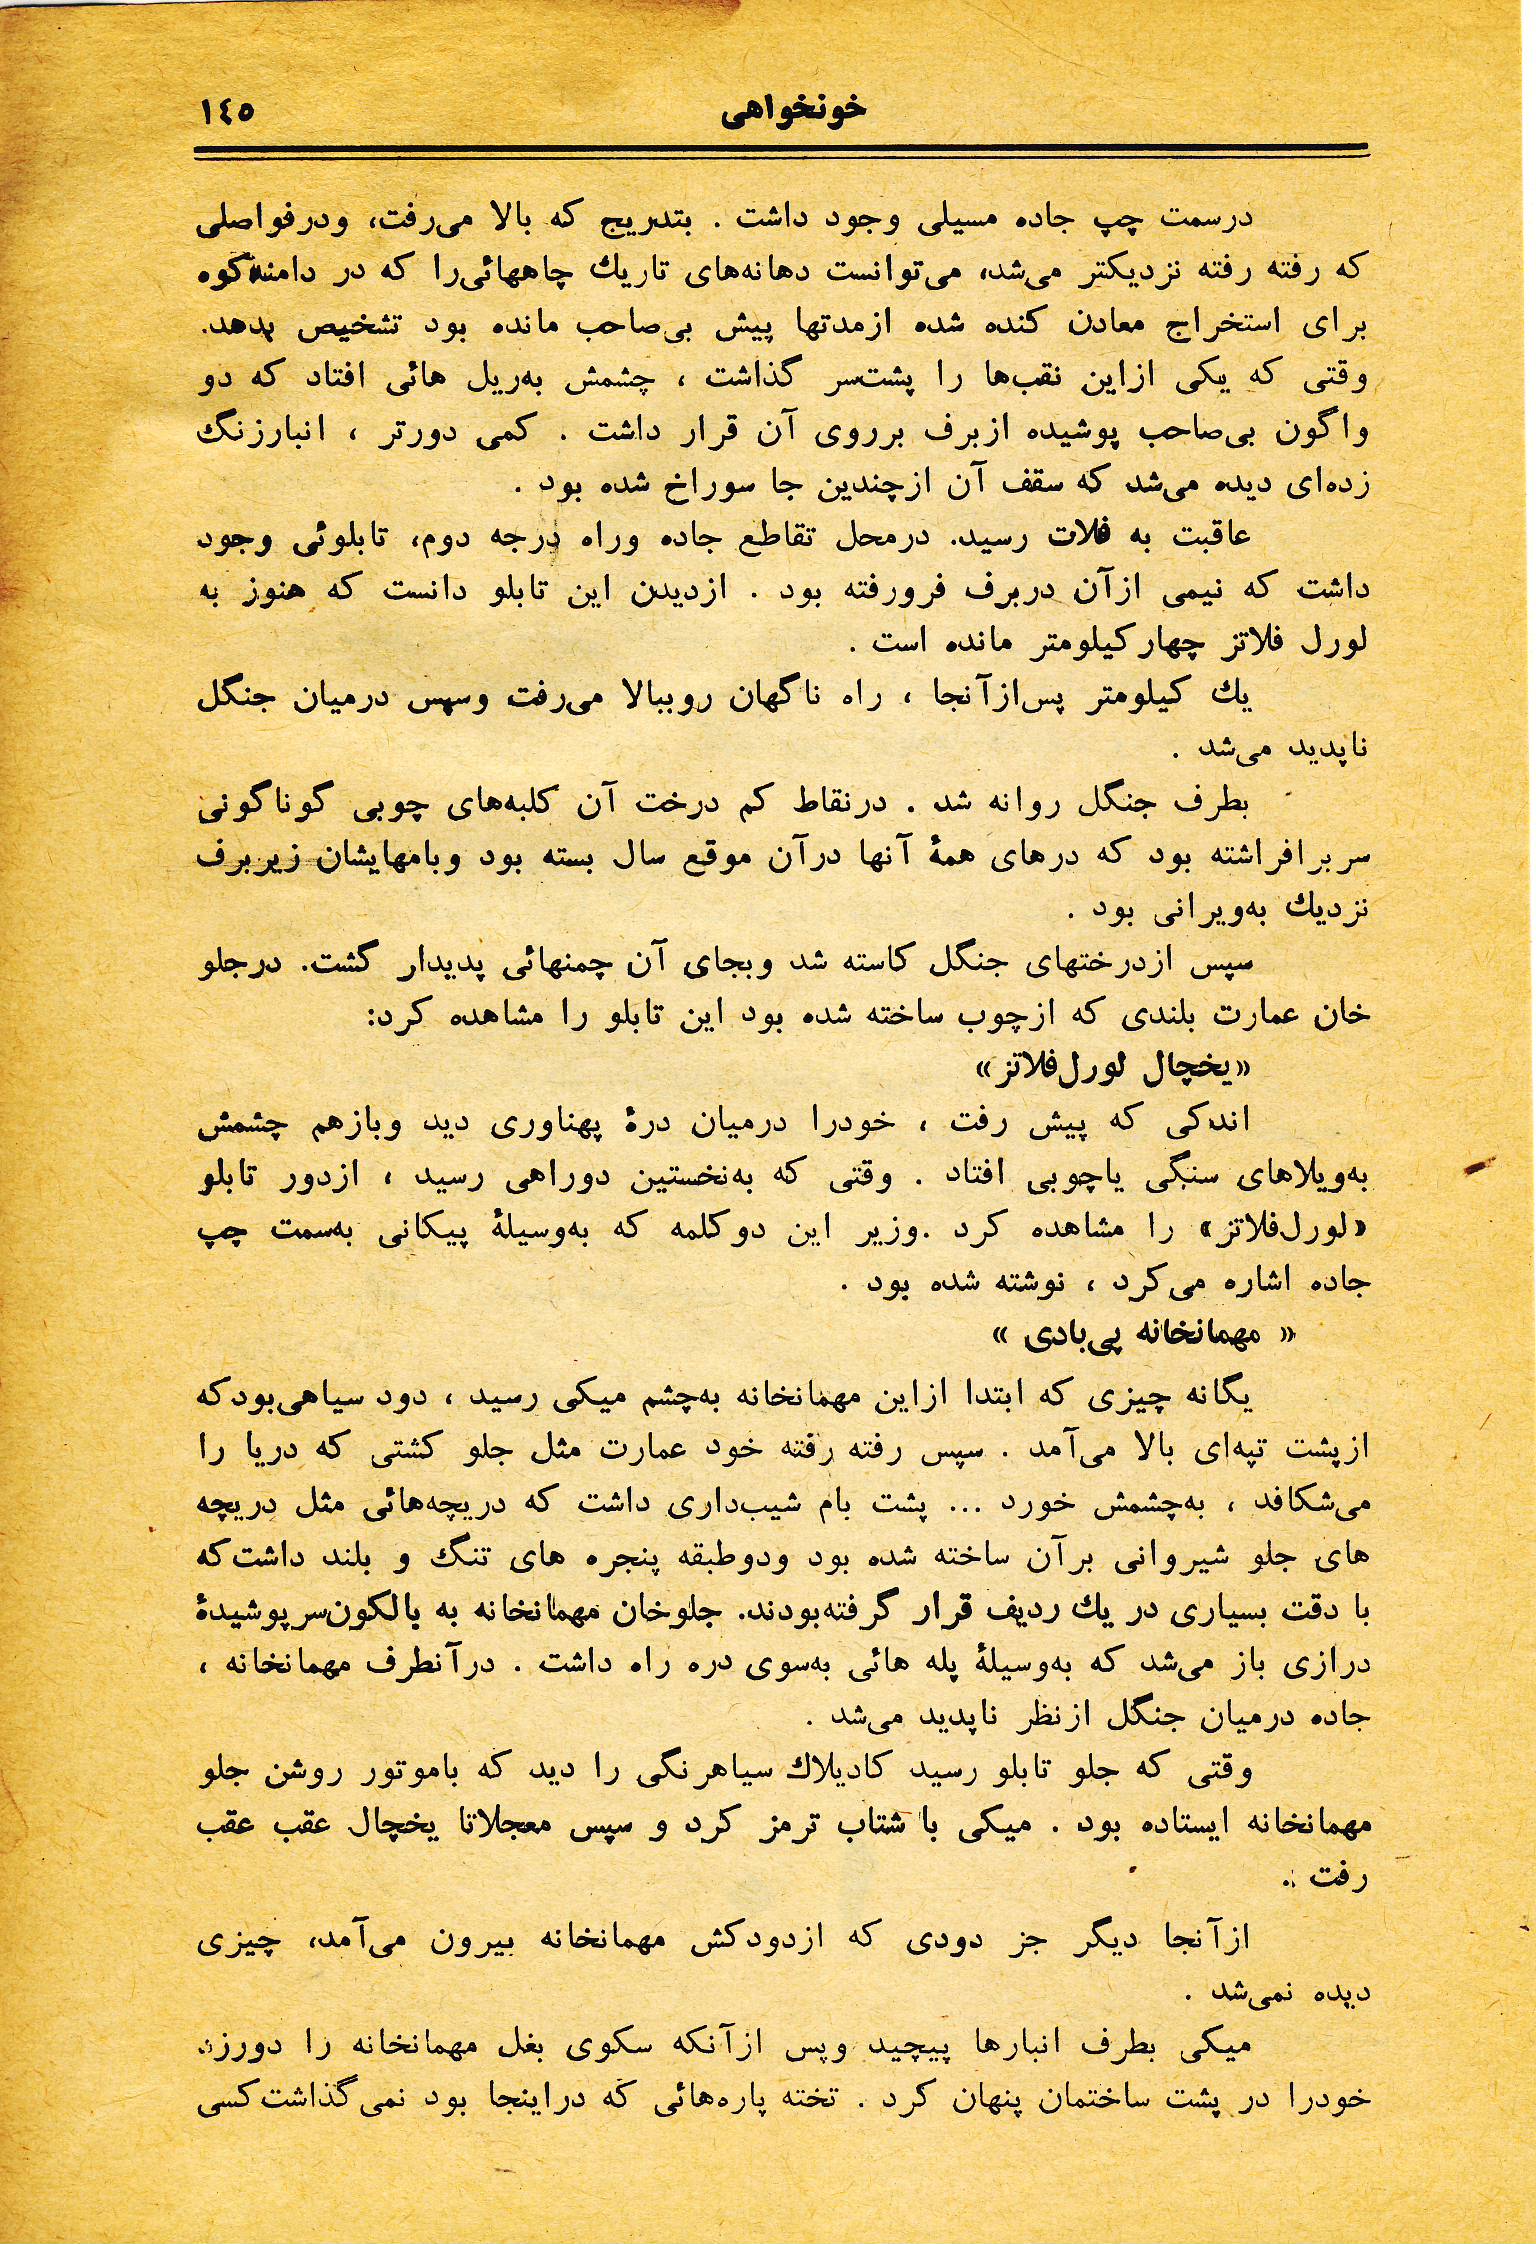 خونخواهی
۱٤٥
درسمت چپ جاده مسیلی وجود داشت . بتدریج که بالا می‌رفت، ودرفواصلی
که رفته رفته نزدیکتر می‌شد، می‌توانست دهانه‌های تاریك چاههائی‌را که در دامنهٔ‌کوه
برای استخراج معادن کنده شده ازمدتها پیش بی‌صاحب مانده بود تشخیص بدهد.
وقتی که یکی ازاین نقب‌ها را پشت‌سر گذاشت ، چشمش به‌ریل هائی افتاد که دو
واگون بی‌صاحب پوشیده ازبرف برروی آن قرار داشت . کمی دورتر ، انبارزنگ
زده‌ای دیده می‌شد که سقف آن ازچندین جا سوراخ شده بود .
عاقبت به فلات رسید. درمحل تقاطع جاده وراه درجه دوم، تابلوئی وجود
داشت که نیمی ازآن دربرف فرورفته بود . ازدیدن این تابلو دانست که هنوز به
لورل فلاتز چهارکیلومتر مانده است .
یك کیلومتر پس‌ازآنجا ، راه ناگهان روببالا می‌رفت وسپس درمیان جنگل
ناپدید می‌شد .
بطرف جنگل روانه شد . درنقاط کم درخت آن کلبه‌های چوبی گوناگونی
سربرافراشته بود که درهای همهٔ آنها درآن موقع سال بسته بود وبامهایشان زیربرف
نزدیك به‌ویرانی بود .
سپس ازدرختهای جنگل کاسته شد وبجای آن چمنهائی پدیدار گشت. درجلو
خان عمارت بلندی که ازچوب ساخته شده بود این تابلو را مشاهده کرد:
«یخچال لورل‌فلاتز»
اندکی که پیش رفت ، خودرا درمیان درهٔ پهناوری دید وبازهم چشمش
به‌ویلاهای سنگی یاچوبی افتاد . وقتی که به‌نخستین دوراهی رسید ، ازدور تابلو
«لورل‌فلاتز» را مشاهده کرد .وزیر این دوکلمه که به‌وسیلهٔ پیکانی به‌سمت چپ
جاده اشاره می‌کرد ، نوشته شده بود .
« مهمانخانه پی‌بادی »
یگانه چیزی که ابتدا ازاین مهمانخانه به‌چشم میکی رسید ، دود سیاهی‌بودکه
ازپشت تپه‌ای بالا می‌آمد . سپس رفته رفته خود عمارت مثل جلو کشتی که دریا را
می‌شکافد ، به‌چشمش خورد ... پشت بام شیب‌داری داشت که دریچه‌هائی مثل دریچه
های جلو شیروانی برآن ساخته شده بود ودوطبقه پنجره های تنگ و بلند داشت‌که
با دقت بسیاری در یك ردیف قرار گرفته‌بودند. جلوخان مهمانخانه به بالکون‌سرپوشیدهٔ
درازی باز می‌شد که به‌وسیلهٔ پله هائی به‌سوی دره راه داشت . درآنطرف مهمانخانه ،
جاده درمیان جنگل ازنظر ناپدید می‌شد .
وقتی که جلو تابلو رسید کادیلاك سیاهرنگی را دید که باموتور روشن جلو
مهمانخانه ایستاده بود . میکی با شتاب ترمز کرد و سپس معجلاتا یخچال عقب عقب
رفت .
ازآنجا دیگر جز دودی که ازدودکش مهمانخانه بیرون می‌آمد، چیزی
دیده نمی‌شد .
میکی بطرف انبارها پیچید وپس ازآنکه سکوی بغل مهمانخانه را دورزد
خودرا در پشت ساختمان پنهان کرد . تخته پاره‌هائی که دراینجا بود نمی‌گذاشت‌کسی